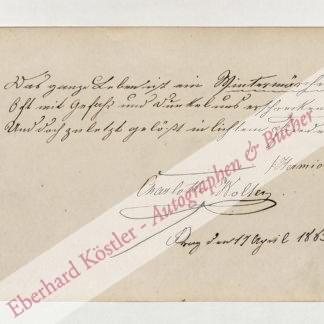 Das ganze Leben ist ein Wintermärchen
Oft mit Gefahr und Dunkel uns erschrecken
Und doch zuletzt gelößt in lichtem
(Hermio
Charlotte Wolter
Prag den 17 April 188
Eberhard Köstler - Autographen & Bücher